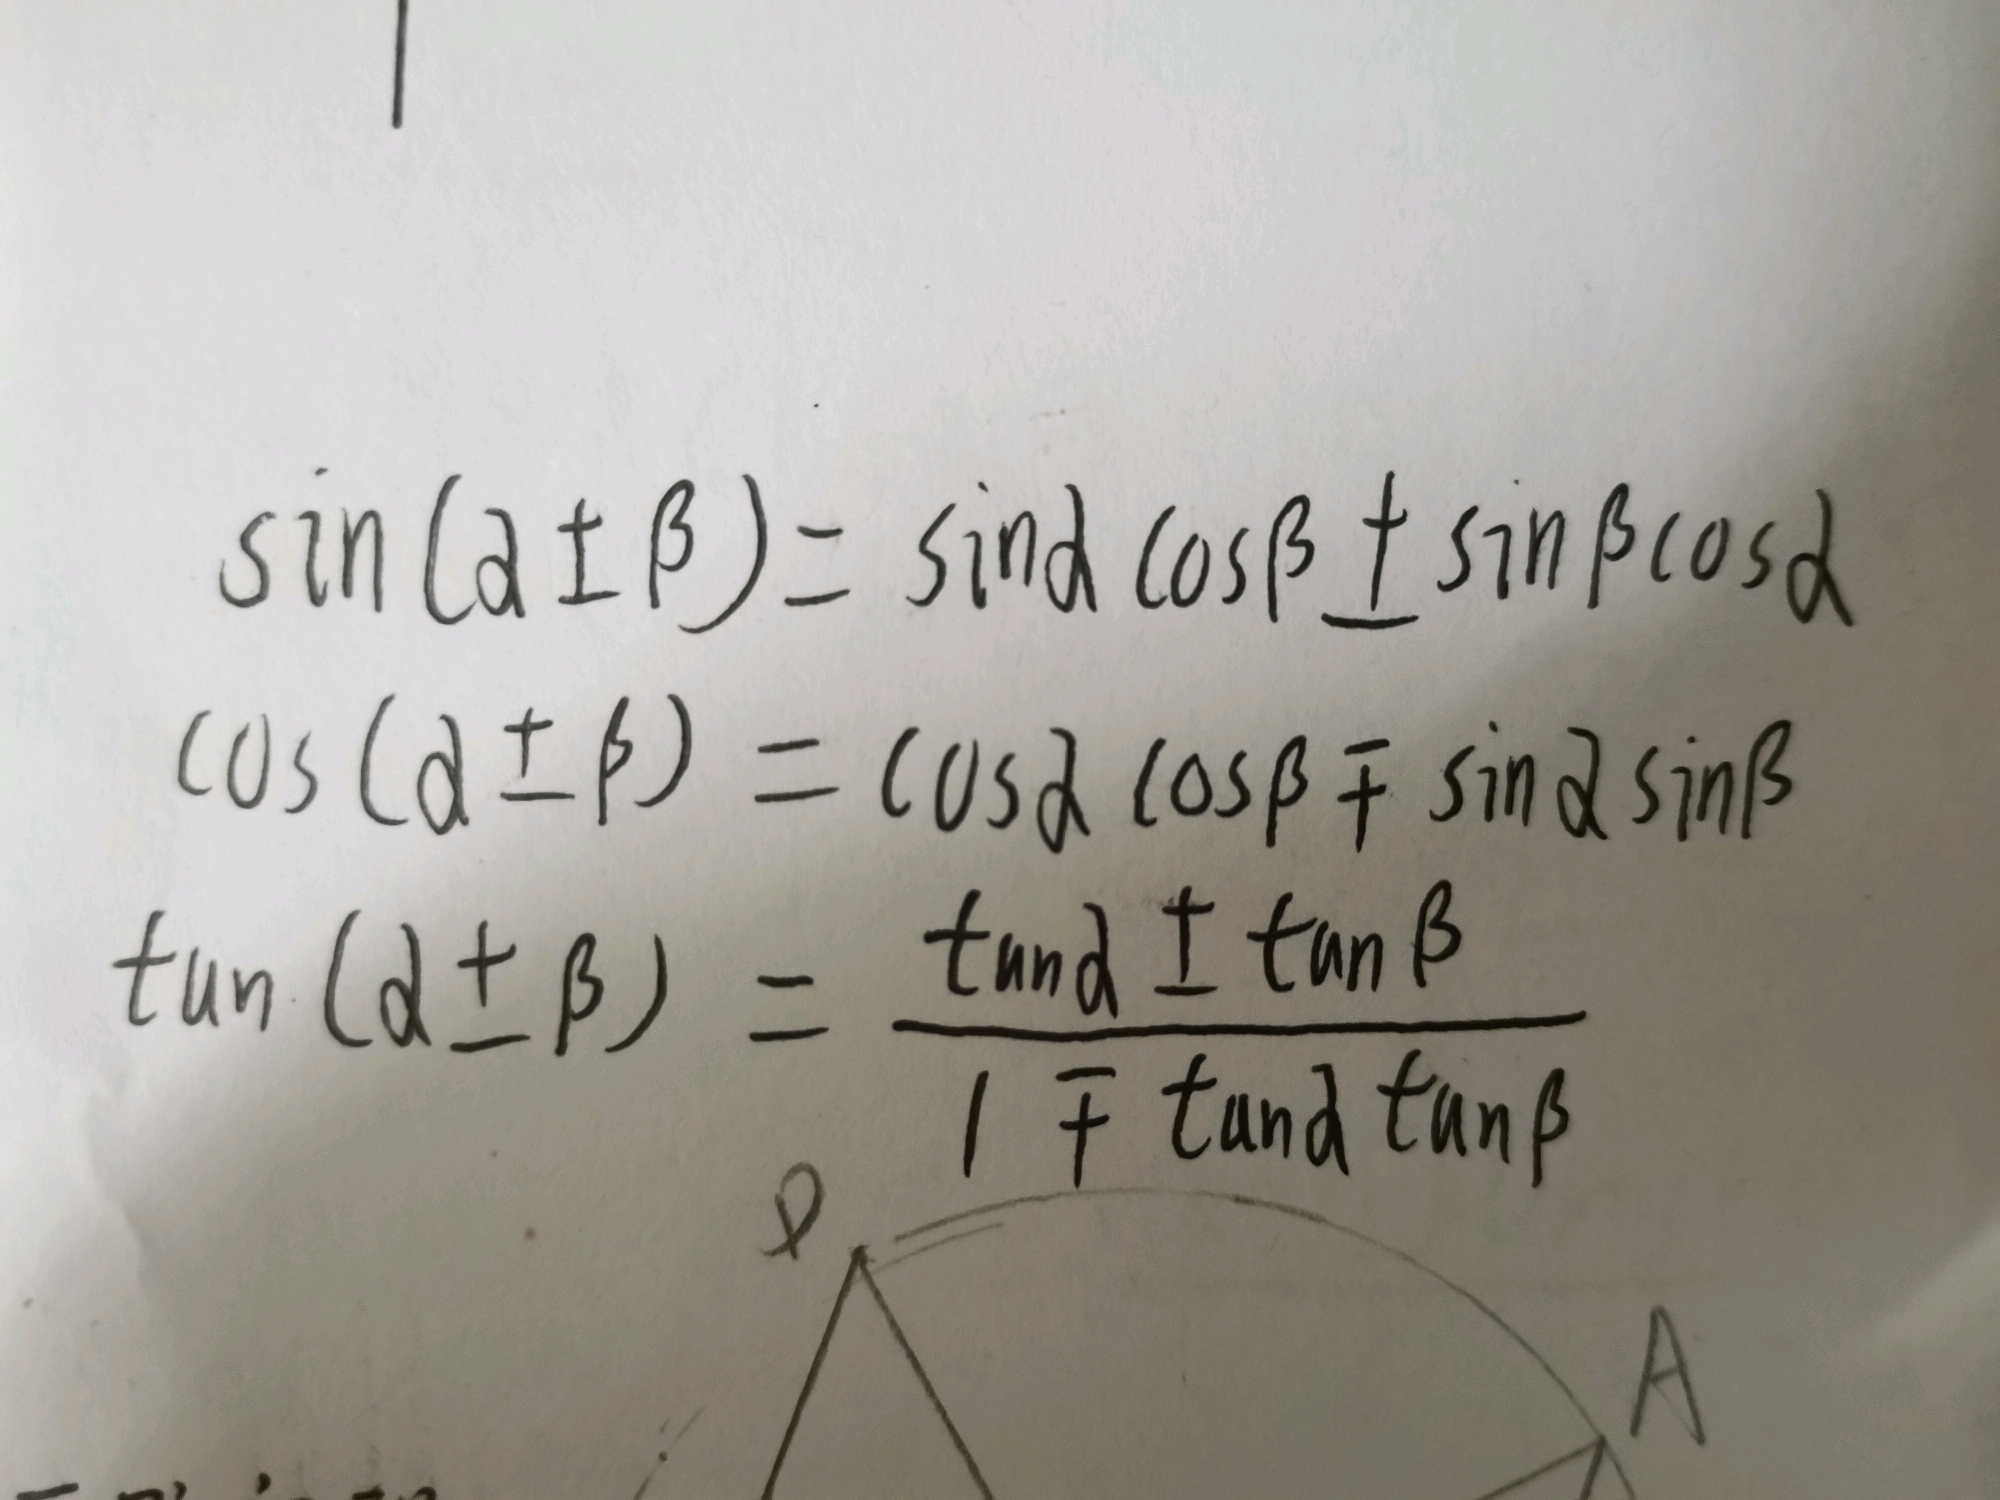 sin(α±β)= sinα cosβ ± sinβ cosα
cos(α±β) = cosα cosβ ∓ sinα sinβ
tan(α±β) = (tanα ± tanβ) / (1 ∓ tanα tanβ)
A